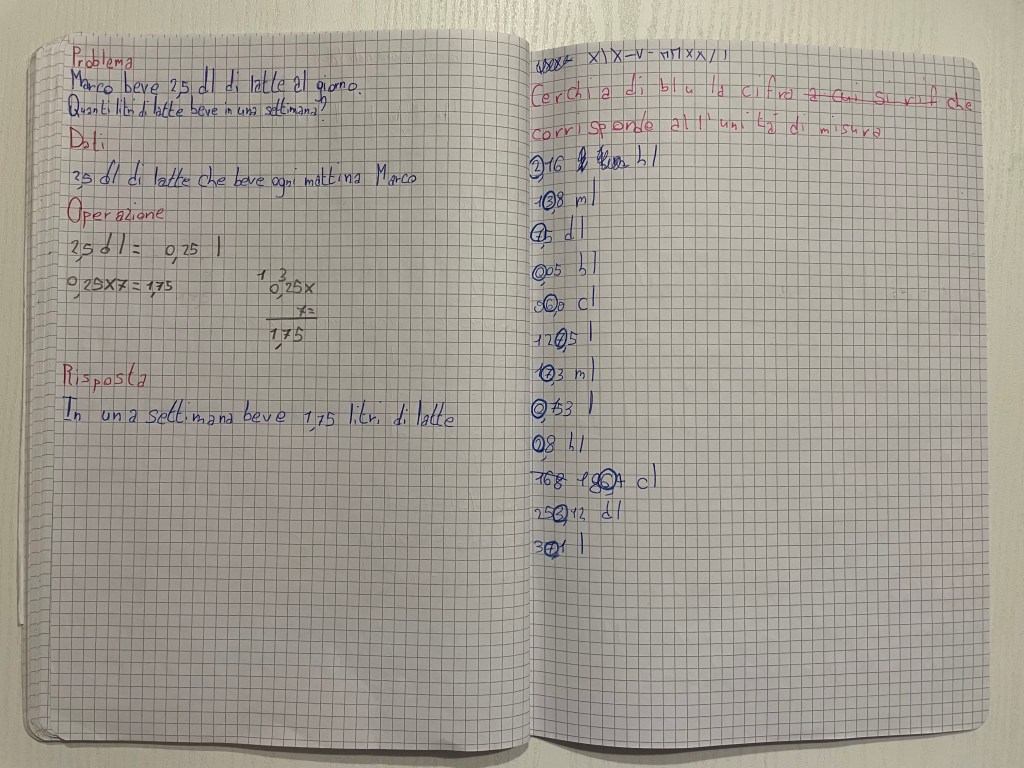 Problema
Marco beve 2,5 dl di latte al giorno.
Quanti litri di latte beve in una settimana?
Dati
2,5 dl di latte che beve ogni mattina Marco
Operazione
2,5 dl = 0,25 l
0,25x7=1,75
1 3
0,25x
7=
1,75
Risposta
In una settimana beve 1,75 litri di latte
Cerchia di blu la cifra a cui si rif che
corrisponde all'unità di misura
2,16 hl
10,8 ml
7,5 dl
0,05 hl
l
ml
0,53 l
0,8 hl
168 cl
253,12 dl
l